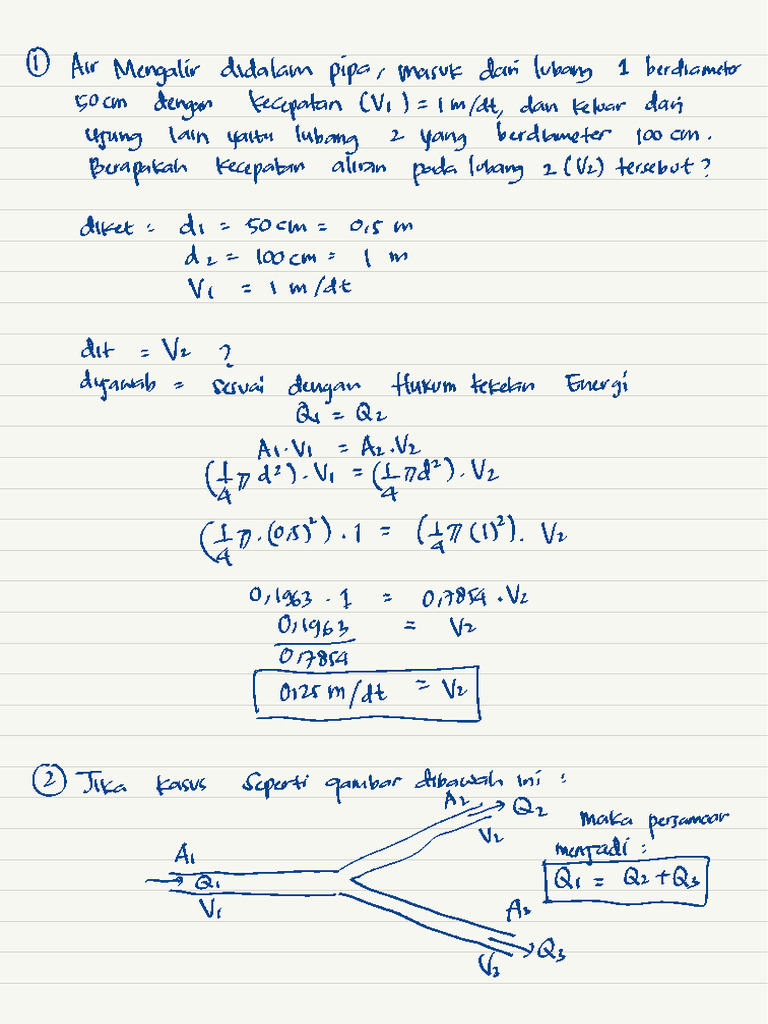 ① Air Mengalir didalam pipa, masuk dari lubang 1 berdiameter
50 cm dengan kecepatan (V1) = 1 m/dt, dan keluar dari
ujung lain yaitu lubang 2 yang berdiameter 100 cm.
Berapakah kecepatan aliran pada lubang 2 (V2) tersebut?
diket : d1 = 50 cm = 0,5 m
d2 = 100 cm = 1 m
V1 = 1 m/dt
dit = V2 ?
dijawab = sesuai dengan Hukum kekelan Energi
Q1 = Q2
A1.V1 = A2.V2
(1/4 π d²).V1 = (1/4 πd²).V2
(1/4 π.(0,5)²).1 = (1/4 π(1)²).V2
0,1963 . 1 = 0,7854 . V2
0,1963 / 0,7854 = V2
0,25 m/dt = V2
② Jika kasus seperti gambar dibawah ini :
A2 Q2
V2
maka persamaar
menjadi :
Q1 = Q2 + Q3
A1
Q1
V1
A3
Q3
V3